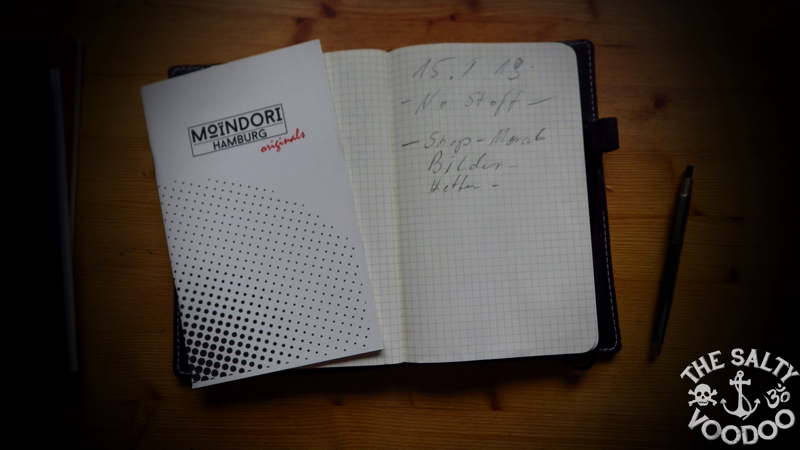 MOÏNDORI
HAMBURG
originals
15.1 19.
- No Stoff -
- Shop - 
Bilder -
THE SALTY
VOODOO